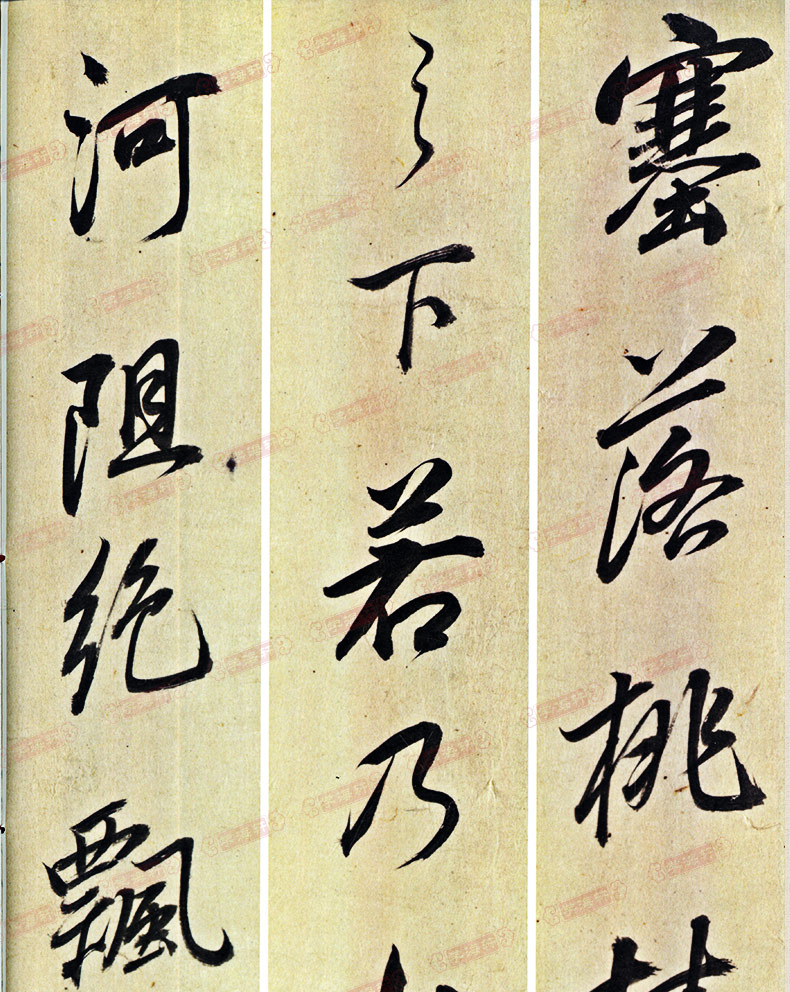 塞落桃
之下若乃
河阻絶飄